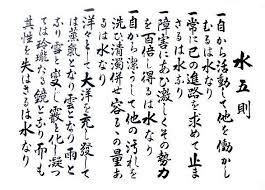 水五則
一自から活動して他を働かし
むるは水なり
一常に己の進路を求めて止ま
さるは水なり
一障害にあひ激しくその勢力
を百倍し得るは水なり
一自から潔うして他の汚れを
洗ひ清濁併せ容るゝの量あ
るは水なり
一洋々として大洋を充し發して
は蒸氣となり雲となり雨と
ふり雪と変し霰と化し凝つ
ては玲瓏たる鏡となり而も
其性を失はさるは水なり